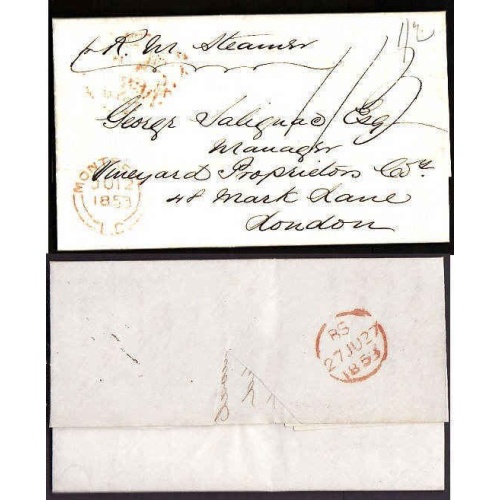 p R. M. Steamer
George Salignac Esq
Manager
Vineyard Proprietors Coy.
48 Mark Lane
London
JU 12
1853
L.C
RS
27 JU 27
1853